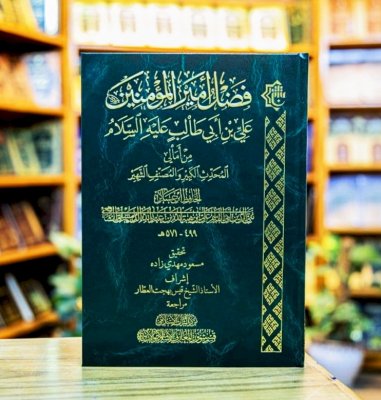 فضل أمير المؤمنين
علي بن أبي طالب عليه السلام
من أمالي
المحدث الكبير والمصنف الشهير
الحافظ ابن عساكر
٤٩٩ - ٥٧١هـ
تحقيق
مسعود مهدي زاده
إشراف
الأستاذ الشيخ قيس بهجت العطار
مراجعة